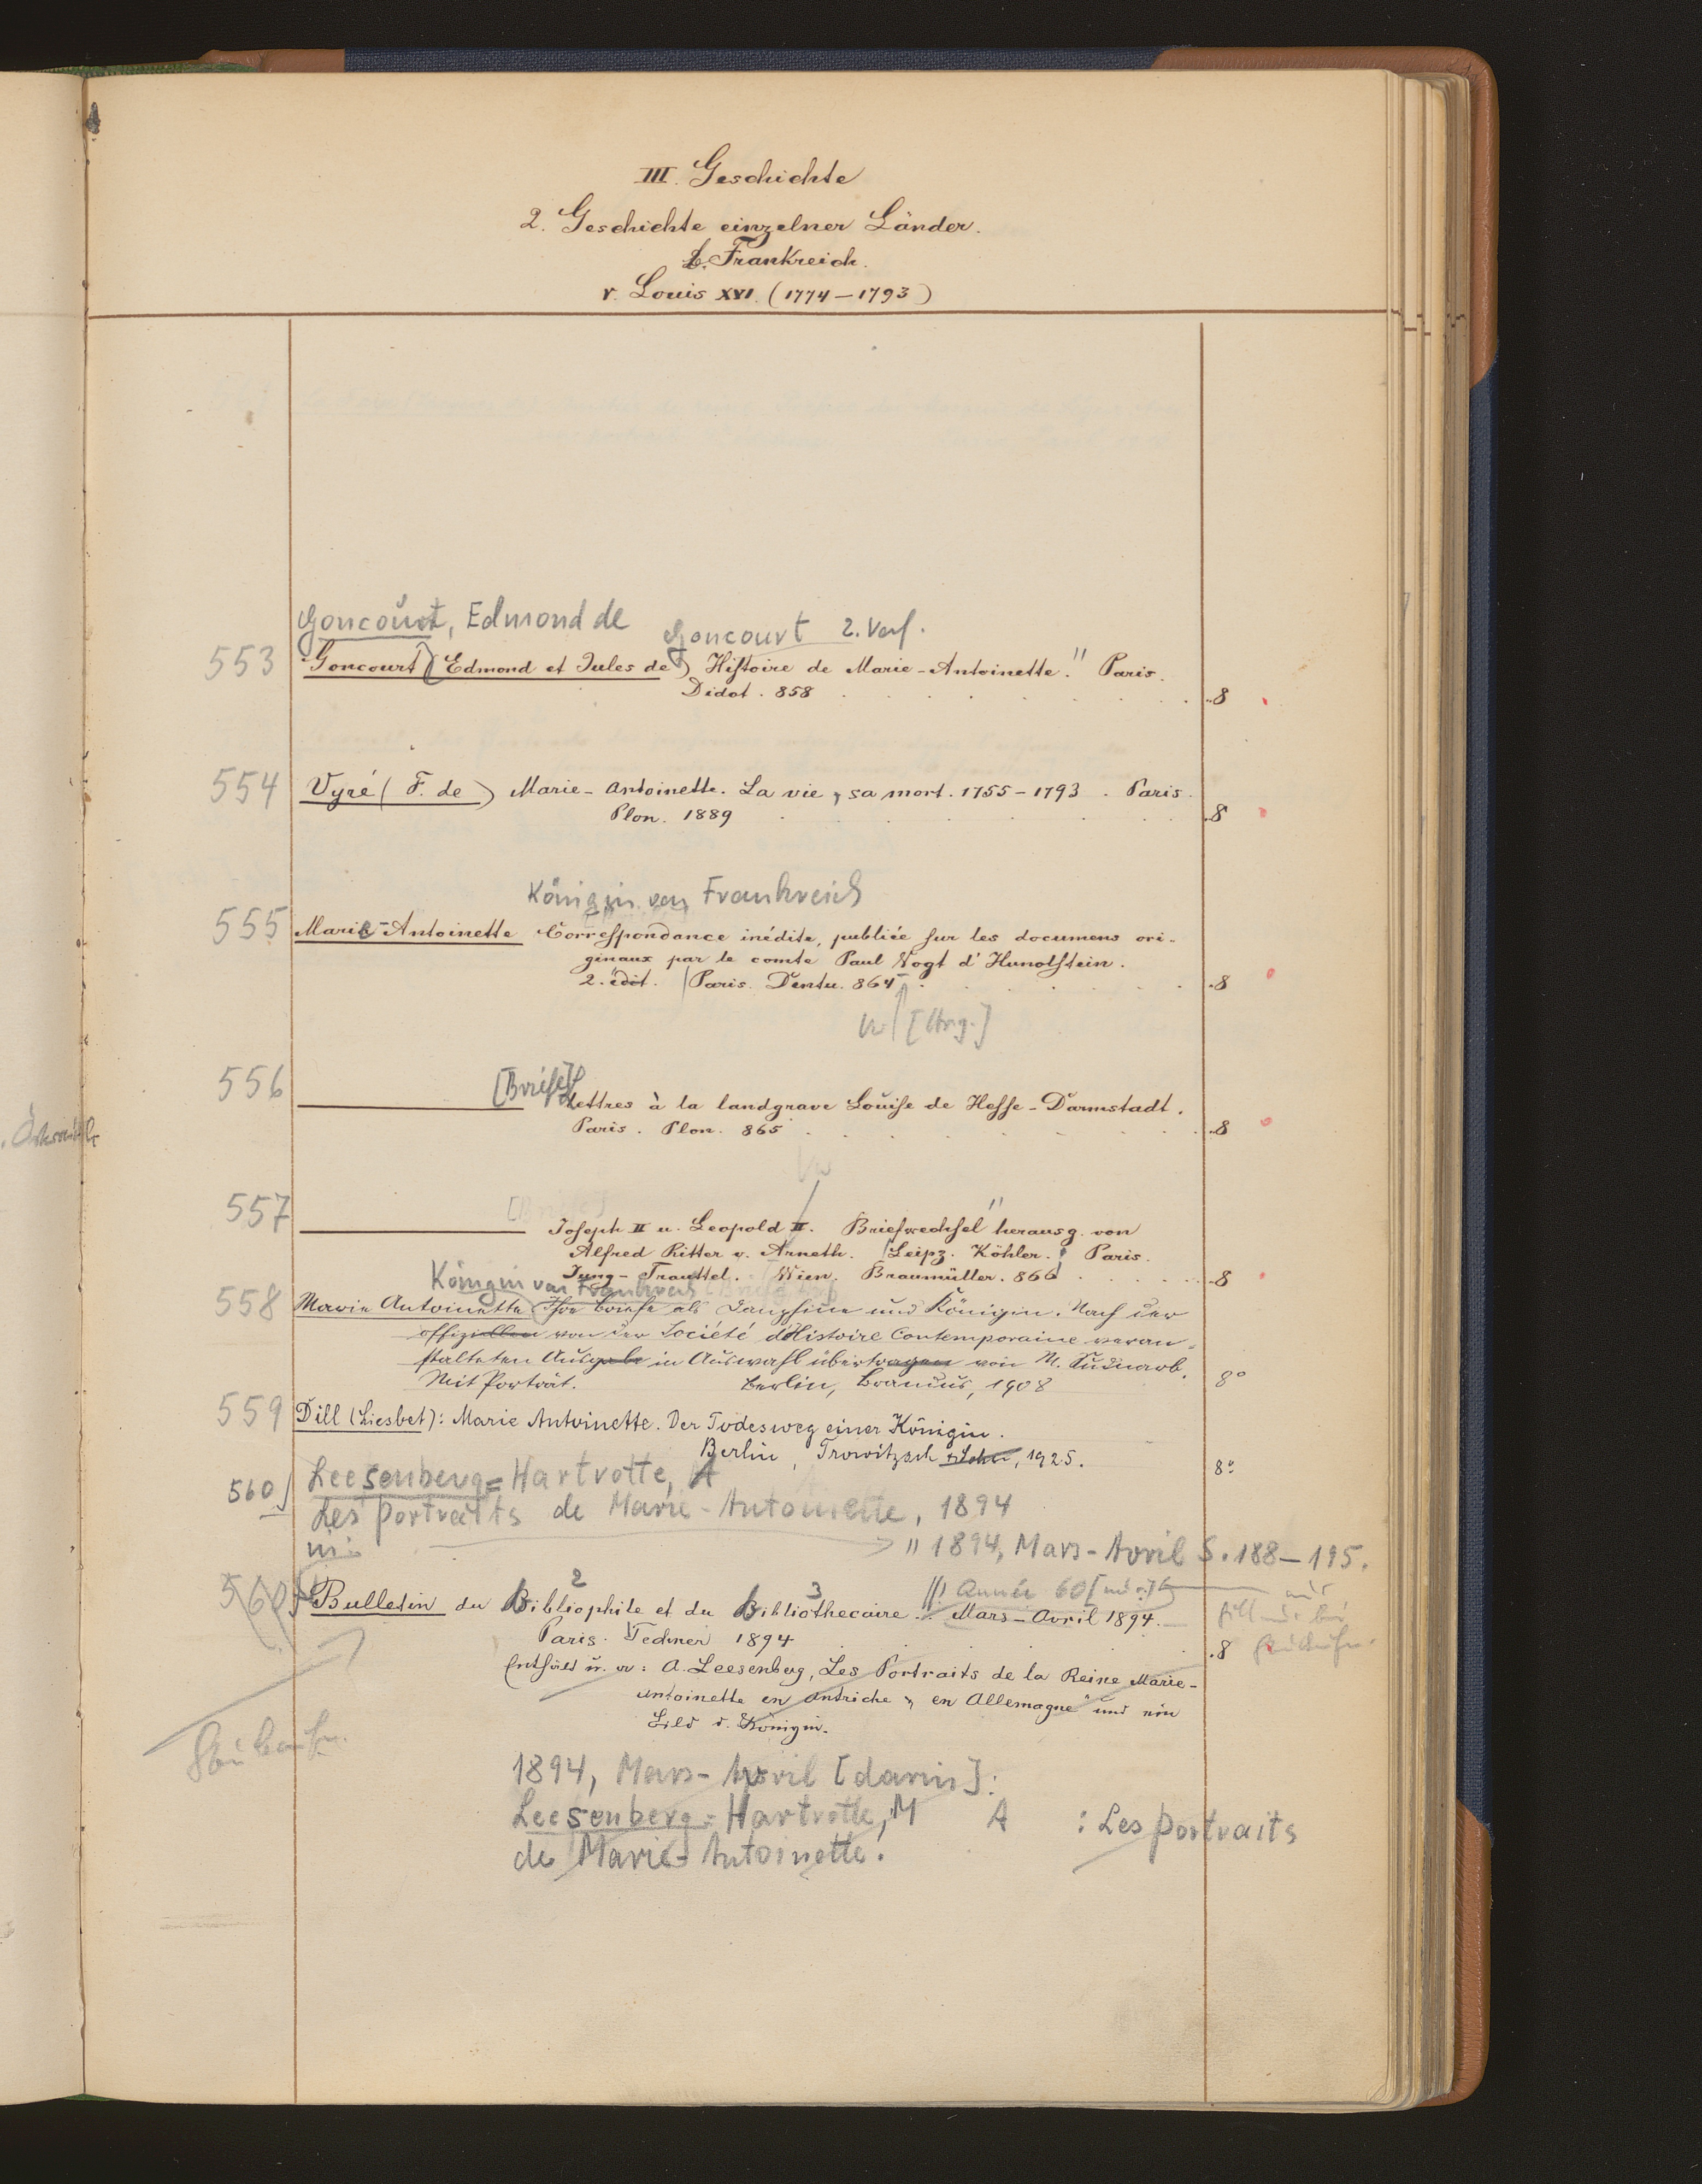 III. Geschichte
2. Geschichte einzelner Länder.
b. Frankreich.
r. Louis XVI. (1774-1793)
Goncourt, Edmond de
Goncourt 2. Verf.
553 Goncourt (Edmond et Jules de) Histoire de Marie-Antoinette." Paris.
Didot. 858 8
554 Vyré (F. de) Marie-Antoinette. La vie, sa mort. 1755-1793. Paris.
Plon. 1889 8
Königin von Frankreich
555 Marie-Antoinette Correspondance inédite, publiée sur les documens ori-
ginaux par le comte Paul Vogt d'Hunolstein.
2. édit. Paris. Dentu. 864 8
[Hrsg.]
556 [Briefe] Lettres à la landgrave Louise de Hesse-Darmstadt.
Paris. Plon. 865 8
Vw
557 [Briefe]
Joseph II u. Leopold II. Briefwechsel" herausg. von
Alfred Ritter v. Arneth. Leipz. Köhler. Paris.
Jung-Treuttel. Wien. Braumüller. 866 8
Königin von Frankreich
558 Marie Antoinette Ihre Briefe als Dauphine und Königin. Nach der
offiziellen von der Société d'Histoire Contemporaine veran-
stalteten Ausgabe in Auswahl übertragen von M.
Mit Porträt. Berlin, Brandus, 1908 8°
559 Dill (Liesbet): Marie Antoinette. Der Todesweg einer Königin.
Berlin, Trowitzsch & Sohn, 1925. 8°
560 Leesenberg=Hartrotte, A
Les portraits de Marie-Antoinette, 1894
in: " 1894, Mars-Avril S. 188-195.
Année 60
560 Bulletin du Bibliophile et du Bibliothecaire. Mars-Avril 1894.
2 3
Paris. Techner 1894 8
Enthält u. a: A. Leesenberg, Les Portraits de la Reine Marie-
Antoinette en Autriche & en Allemagne" und ein
Bild d. Königin.
1894, Mars-Avril [darin]:
Leesenberg=Hartrotte, M A : Les portraits
de Marie-Antoinette.